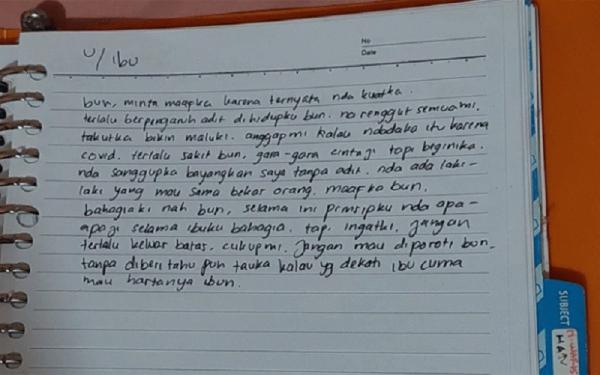 No
Date
u/ ibu
bun, minta maapka karena ternyata nda kuatka.
terlalu berpengaruh adit dihidupku bun. na renggut semuami.
takutka bikin maluki. anggapmi kalau ndadaka itu karena
covid. terlalu sakit bun, gara-gara cintaji tapi beginika.
nda sanggupka bayangkan saya tanpa adit. nda ada laki-
laki yang mau sama bekas orang. maapka bun.
bahagiaki nah bun, selama ini prinsipku nda apa-
apaji selama ibuku bahagia. tapi ingatki, jangan
terlalu keluar batas, cukupmi. Jangan mau diporoti bun.
tanpa diberi tahu pun tauka kalau yg dekati ibu cuma
mau hartanya ibun.
SUBJECT
HAN